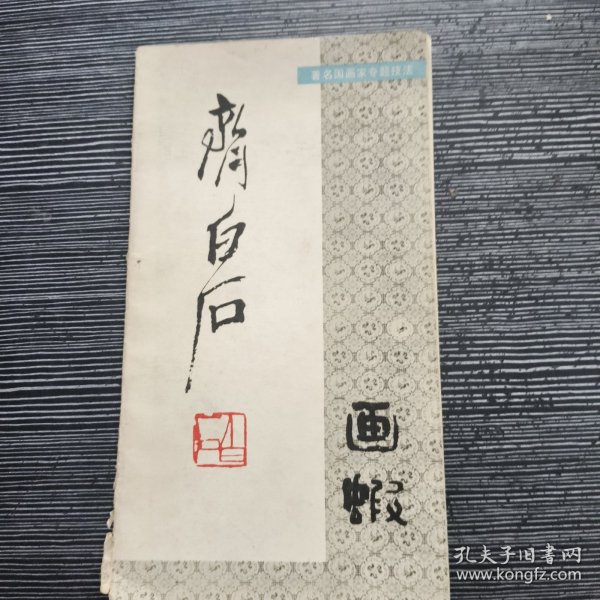 著名国画家专题技法
齊白石
画蝦
孔夫子旧書网
www.kongfz.com